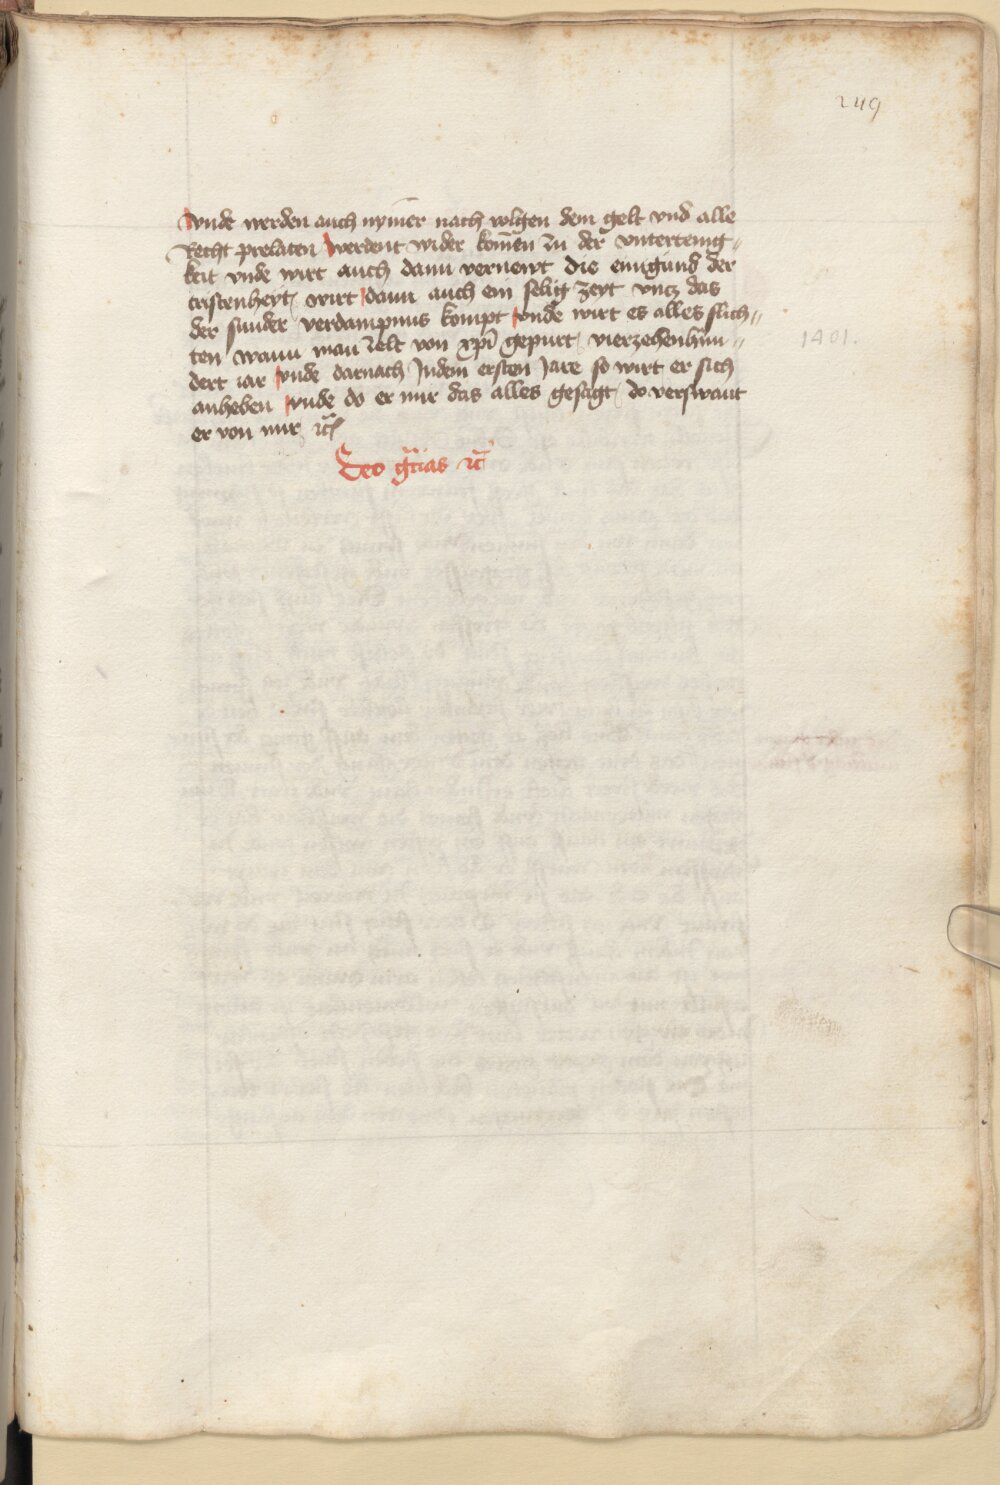 249
vnde werden auch nym̄er nach volgen dem gelt vnd alle
Recht prelaten werdent wider kom̄en zu der vntertenig-
keit vnde wirt auch dann vernewt die einigung der
cristenheyt, wirt dann auch ein selig zeyt vncz das
der sunder verdampnus kompt vnde wirt es alles slich-
ten wann man zelt von xp̄i gepurt, vierzehenhun-
dert iar vnde darnach Jndem ersten Jare so wirt er sich
anheben vnde do er mir das alles gesagt, do verswant
er von mir ꝛc̄
Deo gr̄ias ꝛc̄
1401.